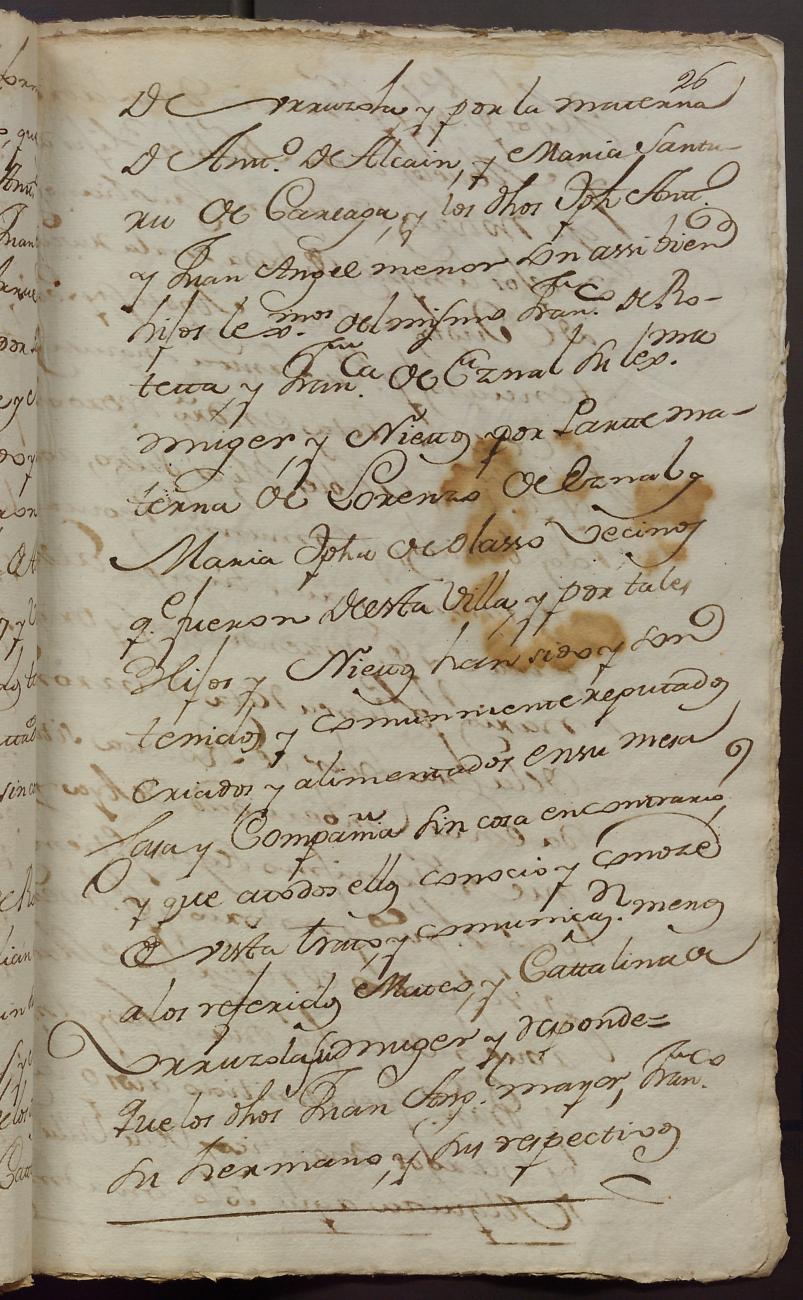 26
De Urruzola y por la materna
De Antt.º De Alcain, y Maria Santu-
ru De Careaga, y los dhos Jph Antt.º
y Juan Angel menor son assi bien
hijos lex.mos del mismo Fran.co de Ro-
tetta, y Fran.ca De Eznal su lex.ma
muger y Nietos por Parte ma-
terna de Lorenzo De Eznal y
Maria Jpha de Olasso Vecinos
q.e fueron de esta Villa, y por tales
Hijos y Nietos han sido y son
tenidos y comunmente reputados
criados y alimentados en su mesa
Casa y Compañia sin cosa en contrario
y que a todos ellos conocio y conoze
De vista trato, y comunicaz.n menos
a los referidos Mateo, y Cattalina de
Urruzola su muger y deponde=
que los dhos Juan Ang.l mayor, Fran.co
su hermano, y sus respectivos